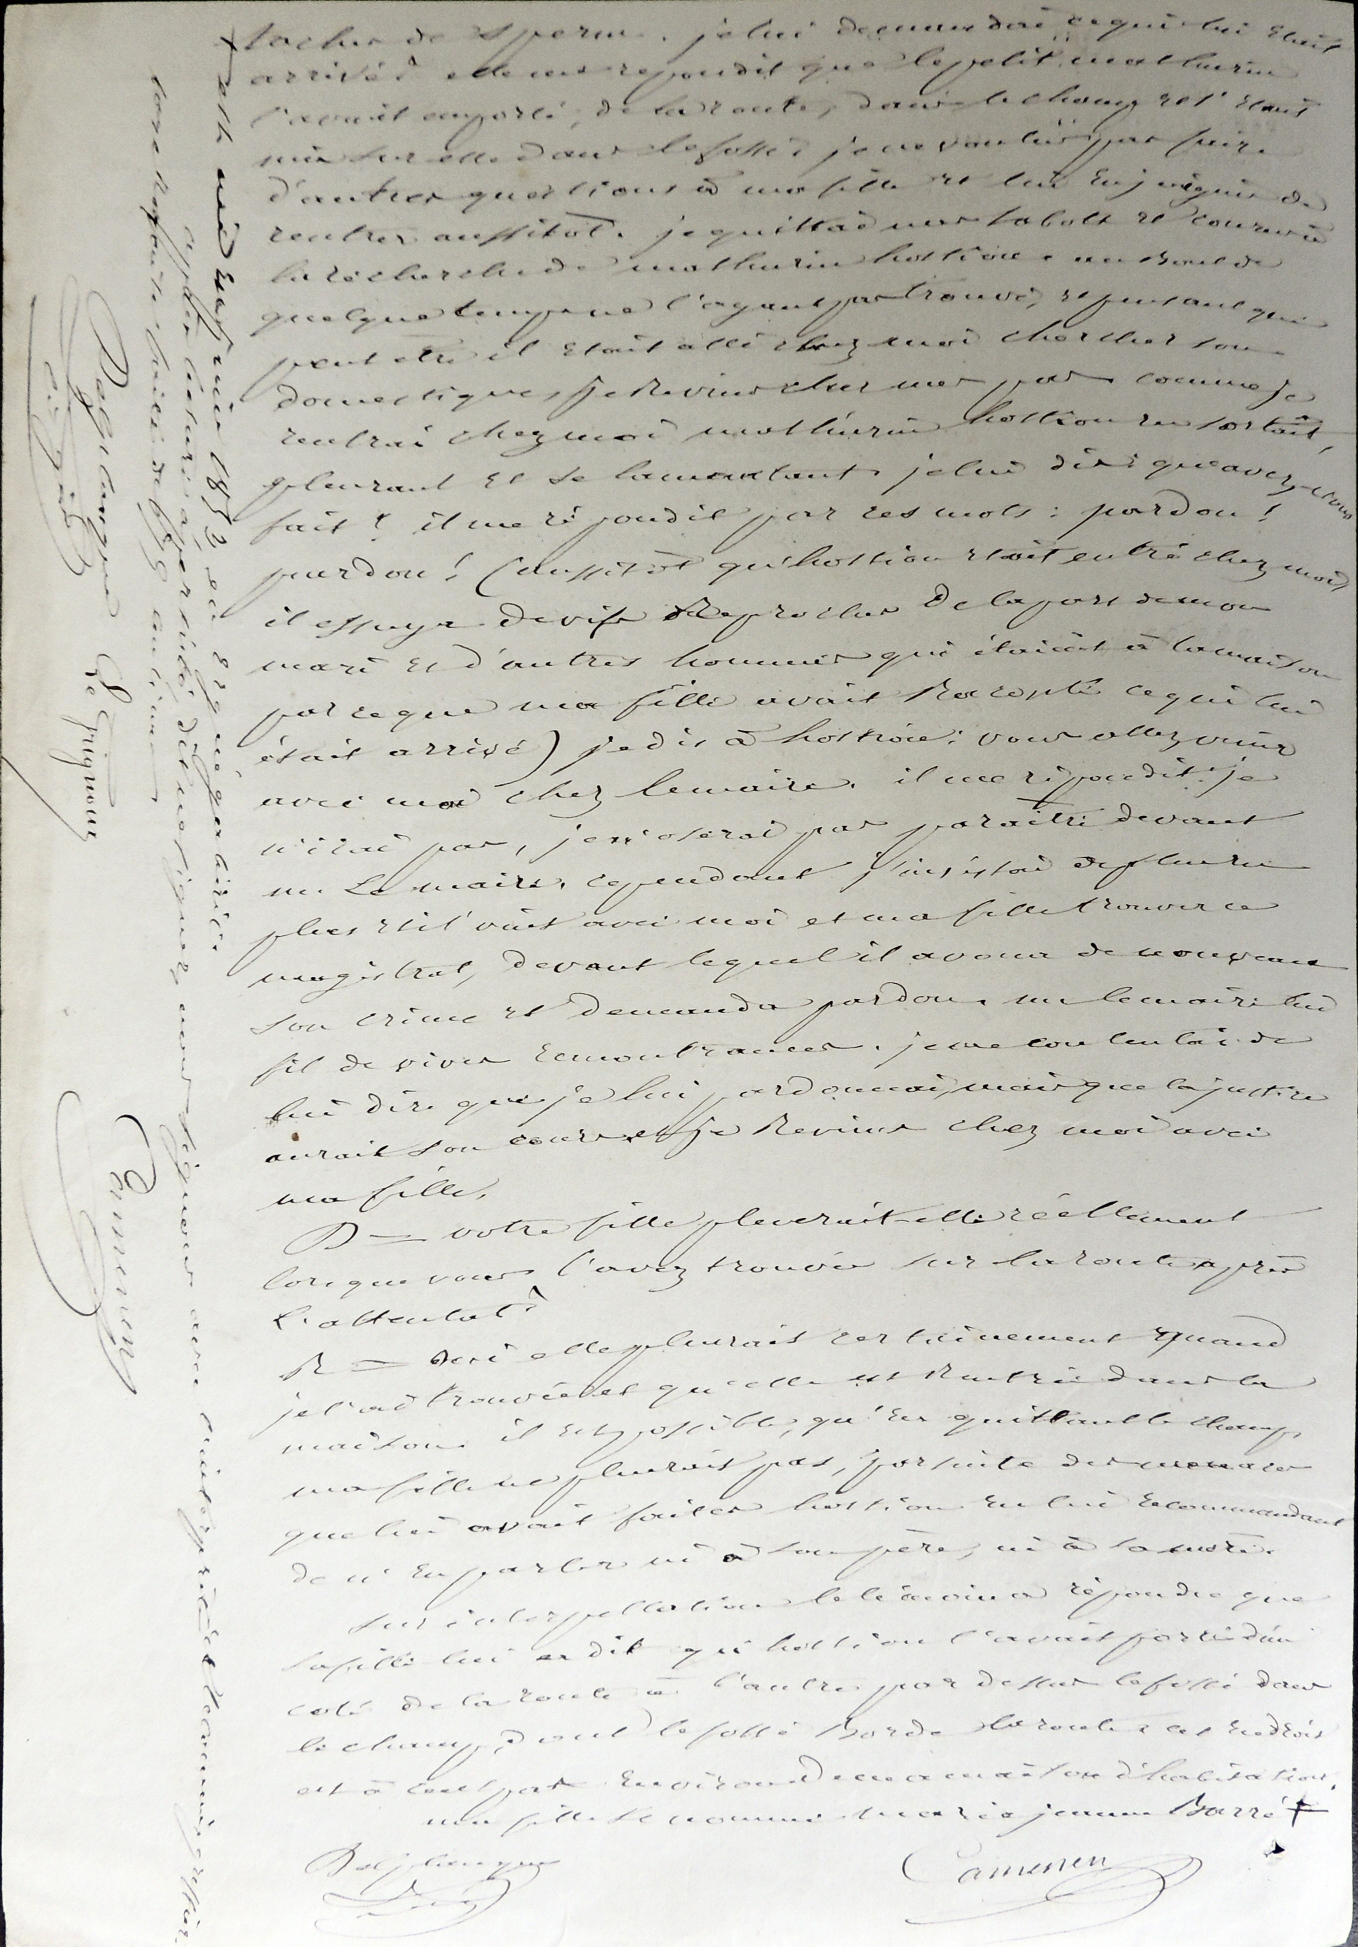 taches de sperme. je lui demandai ce qui lui était
arrivé? elle me repondit que le petit mathurin
l'avait emporté, de la route, dans le champ et s'etant
mis sur elle dans le fossé; je ne voulus pas faire
d'autres questions à ma fille et lui enjoignis de
rentrer aussitot. je quittai mes sabots et courus à
la recherche de mathurin hostiou. au bout de
quelque temps ne l'ayant pas trouvé, et pensant que
peut etre il etait allé chez moi chercher son
domestique, je revins sur mes pas comme je
rentrai chez moi mathurin hostiou en sortait,
pleurant et se lamentant. je lui dis: qu'avez-vous
fait? il me répondit par ces mots: pardon!
pardon! (aussitot qu'hostiou etait entré chez moi,
il essuya de vifs reproches de la part de mon
mari et d'autres hommes qui étaient à la maison
parceque ma fille avait raconté ce qui lui
était arrivé) je dis à hostiou: vous allez venir
avec moi chez le maire. il me répondit: je
n'irai pas, je n'oserai pas paraître devant
mr Le maire. cependant j'insistai de plus en
plus et il vint avec moi et ma fille trouver ce
magistrat, devant lequel il avoua de nouveau
son crime et demanda pardon. mr le maire lui
fit de vives remontrances. je me contentai de
lui dire que je lui pardonnai, mais que la justice
aurait son cours et je revins chez moi avec
ma fille.
D = votre fille pleurait-elle réellement
lorsque vous l'avez trouvée sur la route après
l'attentat?
R = oui elle pleurait certainement quand
je l'ai trouvée et qu'elle est rentrée dans la
maison. il est possible, qu'en quittant le champ,
ma fille ne pleurait pas, par suite des menaces
que lui avait faites hostiou en lui recommandant
de n'en parler ni à son père, ni à sa mère.
sur interpellation le témoin a répondu que
sa fille lui a dit qu'hostiou l'avait porté d'un
coté de la route à l'autre par dessus le fossé dans
le champ, dont le fossé borde la route. cet endroit
est à cent pas environ de ma maison d'habitation.
ma fille se nomme marie jeanne Barré +
Delplanque
Camenen
+ est née en juin 1852 en Erquégabéric.
après lecture a persisté, dit ne signer, nous signons avec l'interprète et le commis greffier
taxe requise, taite de
Delplanque Le Guignour Camenen